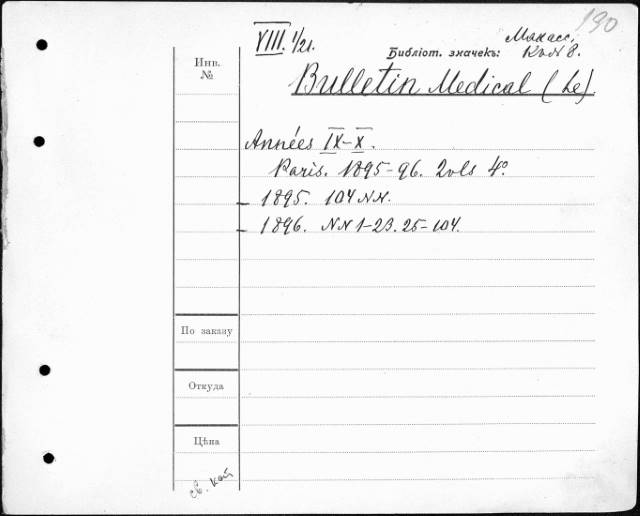 190
VIII. 1/21.
Библіот. значекъ:
Инв.
№
Bulletin Medical (Le).
Années IX-X.
Paris. 1895-96. 2vols 4º.
- 1895. 104 NN.
- 1896. NN 1-23. 25-104.
По заказу
Откуда
Цѣна